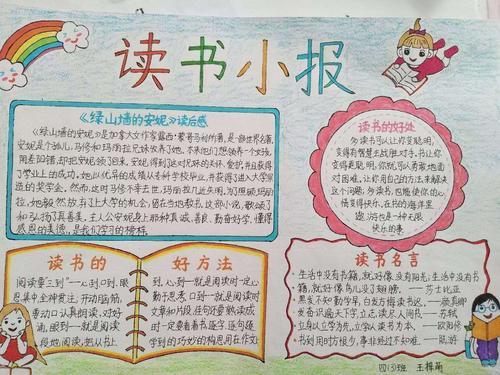 读书小报
《绿山墙的安妮》读后感
《绿山墙的安妮》是加拿大作家露西·蒙哥马利所著，是一部世界名著。
安妮是个孤儿，马修和玛丽拉兄妹收养了她。不来他们想领养一个女孩，
用差阳错，却把安妮领了回来，安妮得到这对兄妹的关怀、爱护，并且获得
了学业上的成功，她以优异的成绩从专科学校毕业，并获得进入大学深
造的奖学金。然而，这时马修不幸去世，玛丽拉几近失明，为了照顾玛丽
拉，她毅然放弃了上大学的机会，留在当地教书。这部小说，歌颂了
和弘扬了真善美，主人公安妮身上那种真诚、善良、勤奋好学、懂得
感恩的美德，是我们学习的榜样。
读书的好处
多读书可以让你变聪明，
变得有智慧去战胜对手。书让你
变得更聪明，你就可以勇敢地面
对困难，让你用自己的方法来解决
这个问题；多读书，也能使你的心
情变得快乐，在书的海洋里
遨游也是一种无限
快乐的事
读书的
阅读重"三到"——心到、口到、眼
到。集中全神贯注，开动脑筋，
要动口认真朗读，对好
词，眼到一就是阅读
段地阅读，把从书上
好方法
到。心到一就是阅读时一定心
勤于思考。口到一就是阅读时
文章和片段，佳句还要熟读成
时一定要看着书逐字、逐句、逐
学到的巧妙的构思用在作文中
读书名言
·生活中没有书籍，就好像没有阳光；生活中没有书
籍，就好像鸟儿没了翅膀。——莎士比亚
·黑发不知勤学早，白首方悔读书迟。——颜真卿
·发奋识遍天下字，立志读尽人间书。——苏轼
·立身以立学为先，立学以读书为本。——欧阳修
·书到用时方恨少，事非经过不知难。——陆游
四(3)班 王梓萌